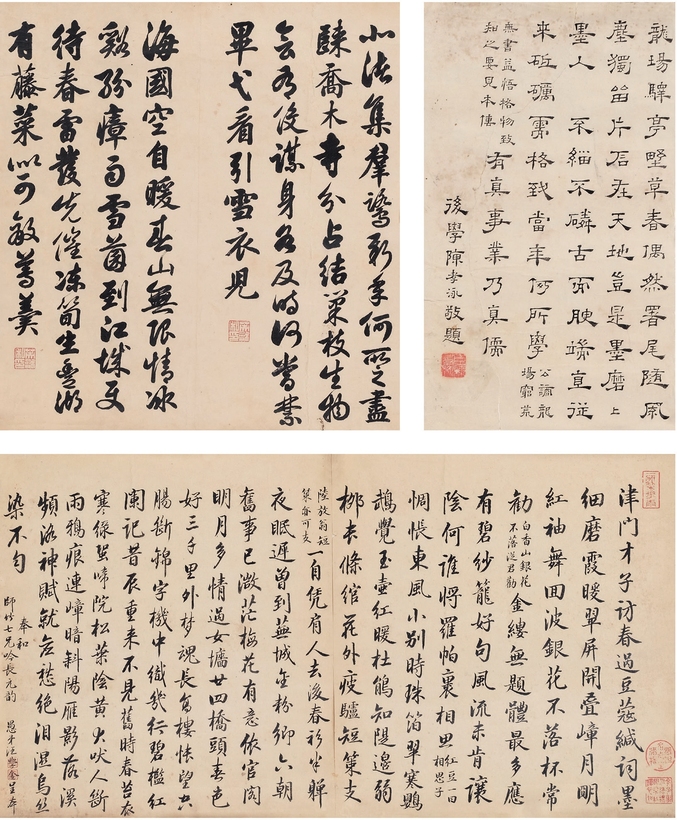 北渚集群鷺新年何所之盡
歸喬木寺分占結巢枝生物
會有役謀身各及時何當禁
畢弋看引雪衣兒
海國空自暖春山無限情冰
谿結瘴雨雪菌到江城更
待春雷發先催凍筍生豐湖
有藤菜似可敵蓴羹
龍場驛亭野草春偶然署尾随風
塵獨留片石在天地豈是墨磨上
墨人 不緇不磷古而腴端直從
来砥礪需格致當年何所學 公謫龍
場窮荒
無書益悟格物致
知之要見本傳 有真事業乃真儒
後學陳孝泳敬題
津門才子訪春過豆蔻緘詞墨
細磨霞暖翠屏開疊嶂月明
紅袖舞回波銀花不落杯常
勸 白香山銀花
不落從君勸 金縷無題體最多應
有碧紗籠好句風流未肯讓
陰何誰將羅帕裹相思 紅豆一曰
相思子
惆悵東風小別時珠箔翠寒鸚
鵡覺玉壺紅暖杜鵑知隄邊弱
柳條綰花外疲驢短策支
陸放翁短
策余可支 一自凭肩人去後春衫半軃
夜眠遲曾到蕪城金粉鄉六朝
舊事已微茫梅花有意依官閣
明月多情過女牆廿四橋頭春色
好三千里外夢魂長倚樓悵望
腸斷錦字機中織幾行碧檻紅
闌記昔辰重來不見舊時春苔
寒綠院松葉陰黃火吠人斷
雨鴉痕連嶂暗斜陽雁影落溪
頻洛神賦就含愁絕淚濕烏絲
染不勻
奉和
師竹七兄吟長元韵